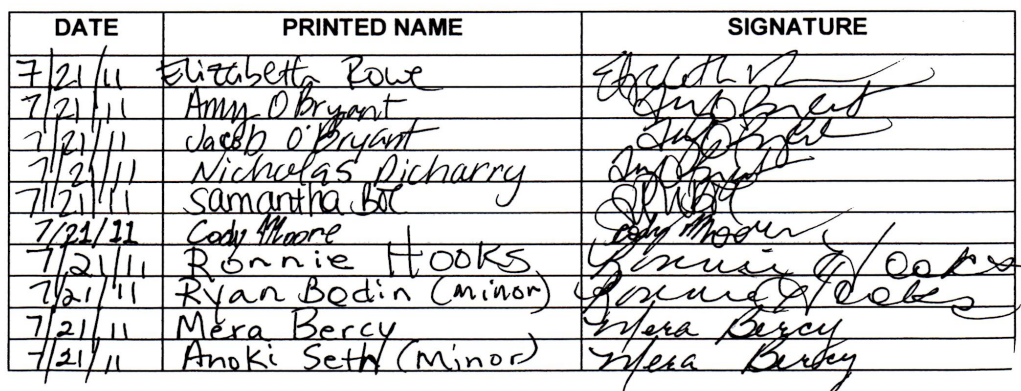 DATE PRINTED NAME SIGNATURE
7/21/11 Elizabetta Rowe
7/21/11 Amy O'Bryant
7/21/11 Jacob O'Bryant
7/21/11 Nicholas Dicharry
7/21/11 Samantha
7/21/11 Cody Moore Cody Moore
7/21/11 Ronnie Hooks Ronnie Hooks
7/21/11 Ryan Bodin (minor) Ronnie Hooks
7/21/11 Mera Bercy Mera Bercy
7/21/11 Anoki Seth (Minor) Mera Bercy